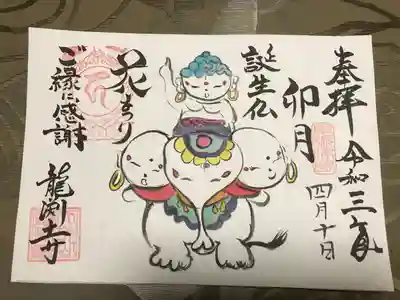 奉拝 令和三年
四月十日
卯月
誕生仏
花まつり
ご縁に感謝
龍渕寺